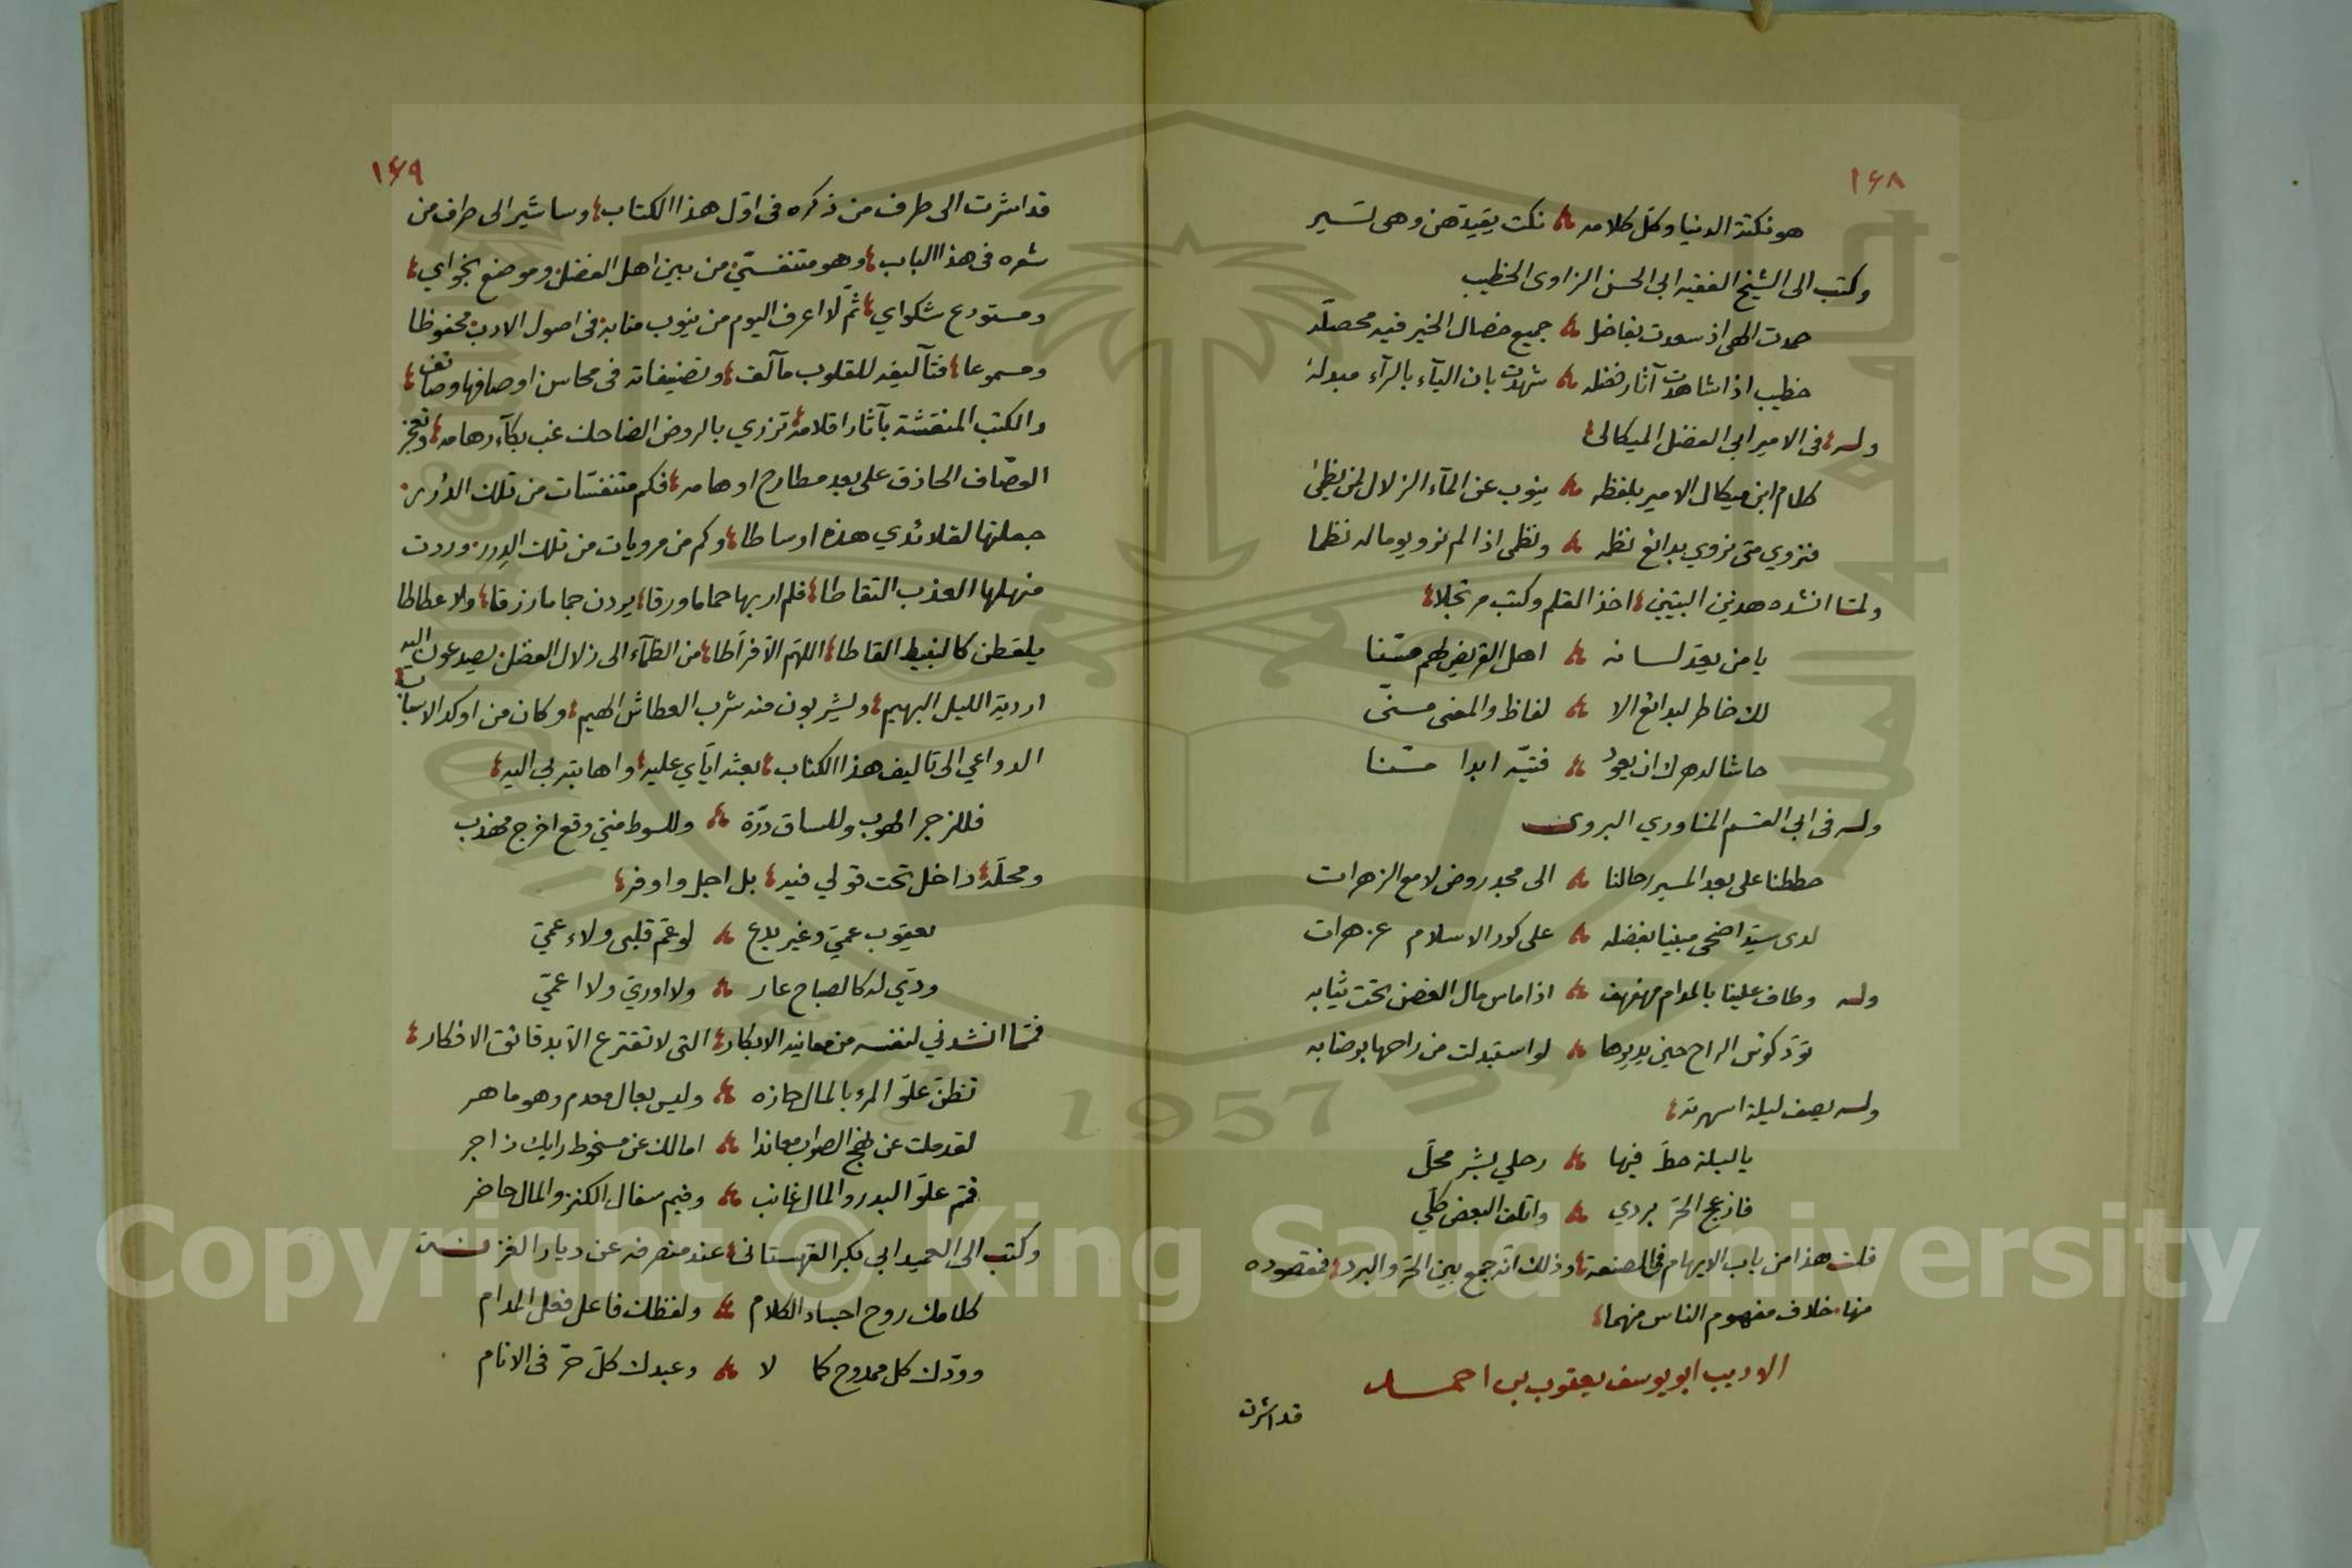 ١٦٨
هو نكتة الدنيا وكل كلامه نكت يقيدهن وهى تسير
وكتب الى الشيخ الفقيه ابى الحسن الزاوى الخطيب
حمدت الهى اذ سعدت بفاضل جميع خصال الخير فيه محصله
خطيب اذا شاهدت آثار فضله شهدت بان اليآء بالرآء مبدله
وله فى الامير ابى الفضل الميكالى
كلام ابن ميكال الامير بلفظه ينوب عن المآء الزلال لمن يظمى
فنروي متى نروي بدائع نظمه ونظمى اذا لم نرو يوما له نظما
ولمّا انشده هذين البيتين اخذ القلم وكتب مرتجلا
يا من يعد لسانه اهل القريض لهم مسنّا
لك خاطر لبدائع الا لفاظ والمعنى مسنّى
حاشا لدهرك ان يعود فتيّه ابدا مسنّا
وله فى ابى القسم المناوري البروى
حططنا على بعد المسير رحالنا الى مجد روض لامع الزهرات
لدى سيّد اضحى مبنيا بفضله على كور الاسلام عز هرات
وله وطاف علينا بالمدام مهفهف اذا ماس مال الغصن تحت ثيابه
تودّ كؤس الراح حين يديرها لو استبدلت من راحها برضابه
وله يصف ليلة اسهرته
يا ليلة حطّ فيها رحلي بشر محلّ
فازعج الحرّ بردي واتلف البعض كلّي
قلت هذا من باب الايهام فى الصنعة وذلك انّه جمع بين الحرّ والبرد فمقصوده
منها خلاف مفهوم الناس منهما
الاديب ابو يوسف يعقوب بن احمد
قد اشرت
١٦٩
قد اشرت الى طرف من ذكره فى اوّل هذا الكتاب وساشير الى طرف من
شعره فى هذا الباب وهو متنفسيّ من بين اهل الفضل وموضع نجواي
ومستودع شكواي ثمّ لا اعرف اليوم من ينوب منابه فى اصول الادب محفوظا
ومسموعا فتآليفه للقلوب مآلف وتصنيفاته فى محاسن اوصافها وصائف
والكتب المنقشة بآثار اقلامه تزري بالروض الضاحك غب بكآء رهامه وتعجز
الوصّاف الحاذق على بعد مطارح اوهامه فكم متنفسّات من تلك الدُرر
جعلتها لقلائدي هذه اوساطا وكم من مرويات من تلك الدِرر وردت
منهلها العذب التقاطا فلم ار بها حماما ورقا يردن جماما رزقا ولا عطاطا
يلقطن كالنبيط القاطا اللهم الاّ فرّاطا من الظمآء الى زلال الفضل يصدعون اليه
اردية الليل البهيم ويشربون منه شرب العطاش الهيم وكان من اوكد الاسباب
الدواعي الى تاليف هذا الكتاب بعثه ايّاي عليه واهابته بى اليه
فللزجر الهوب وللساق درّة وللسوط منّي وقع اخرج مهذب
ومحلّه داخل تحت قولي فيه بل اجل واوفر
يعقوب عميّ وغير بدع لو عمّ قلبى ولاء عميّ
ودّي له كالصباح عار ولا اوريّ ولا اعميّ
فممّا انشدني لنفسه من معانيه الابكار التى لا تفترع الاّ بدقائق الافكار
تظنّ علوّ المرء بالمال حازه وليس بعال معدم وهو ماهر
لقد ملت عن نهج الصواب معاندا امالك عن مسخوط رايك زاجر
فثم علوّ البدر والمال غائب وفيم سفال الكنز والمال حاضر
وكتب الى العميد ابى بكر القهستانى عند منصرفه عن ديار الغزنة
كلامك روح اجساد الكلام ولفظك فاعل فعل المدام
وودّك كل ممدوح كما لا وعبدك كلّ حرّ فى الانام
Copyright © King Saud University
1957